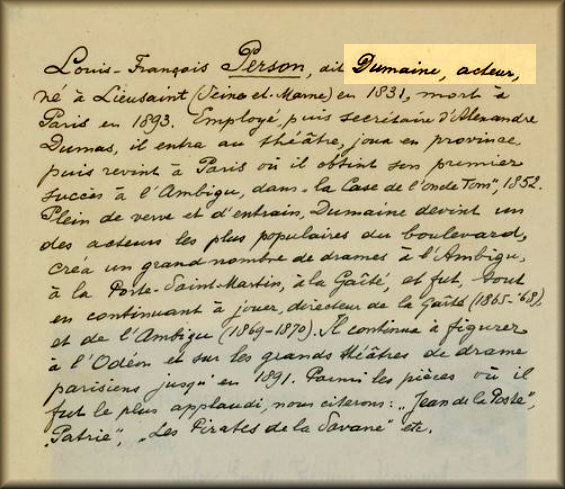 Louis-François Person, dit Dumaine, acteur,
né à Lieusaint (Seine-et-Marne) en 1831, mort à
Paris en 1893. Employé puis secrétaire d'Alexandre
Dumas, il entra au théâtre, joua en province,
puis revint à Paris où il obtint son premier
succès à l'Ambigu, dans „la Case de l'oncle Tom", 1852.
Plein de verve et d'entrain, Dumaine devint un
des acteurs les plus populaires du boulevard,
créa un grand nombre de drames à l'Ambigu,
à la Porte-Saint-Martin, à la Gaîté, et fut, tout
en continuant à jouer, directeur de la Gaîté (1865-'68),
et de l'Ambigu (1869-1870). Il continua à figurer
à l'Odéon et sur les grands théâtres de drame
parisiens jusqu'en 1891. Parmi les pièces où il
fut le plus applaudi, nous citerons: „Jean de la Poste",
„Patrie", „Les Pirates de la Savane" etc.